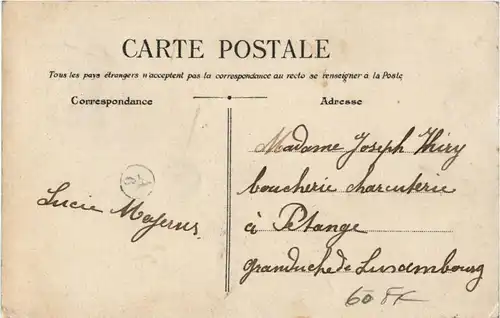 CARTE POSTALE
Tous les pays étrangers n'acceptent pas la correspondance au recto se renseigner à la Poste
Correspondance
Adresse
Madame Joseph Thiry
boucherie charcuterie
à Pétange
Granduché de Luxembourg
Lucie Majerus
60